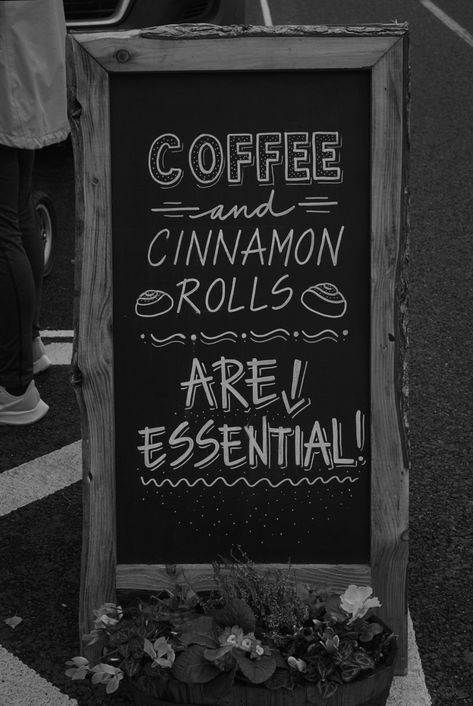 COFFEE
and
CINNAMON
ROLLS
ARE
ESSENTIAL!